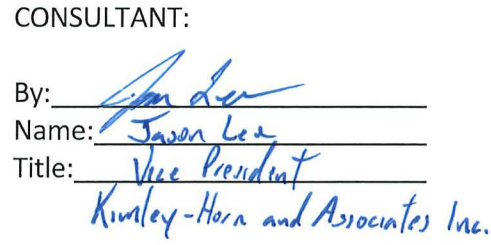 CONSULTANT:
By: Jason Lee
Name: Jason Lee
Title: Vice President
Kimley-Horn and Associates Inc.